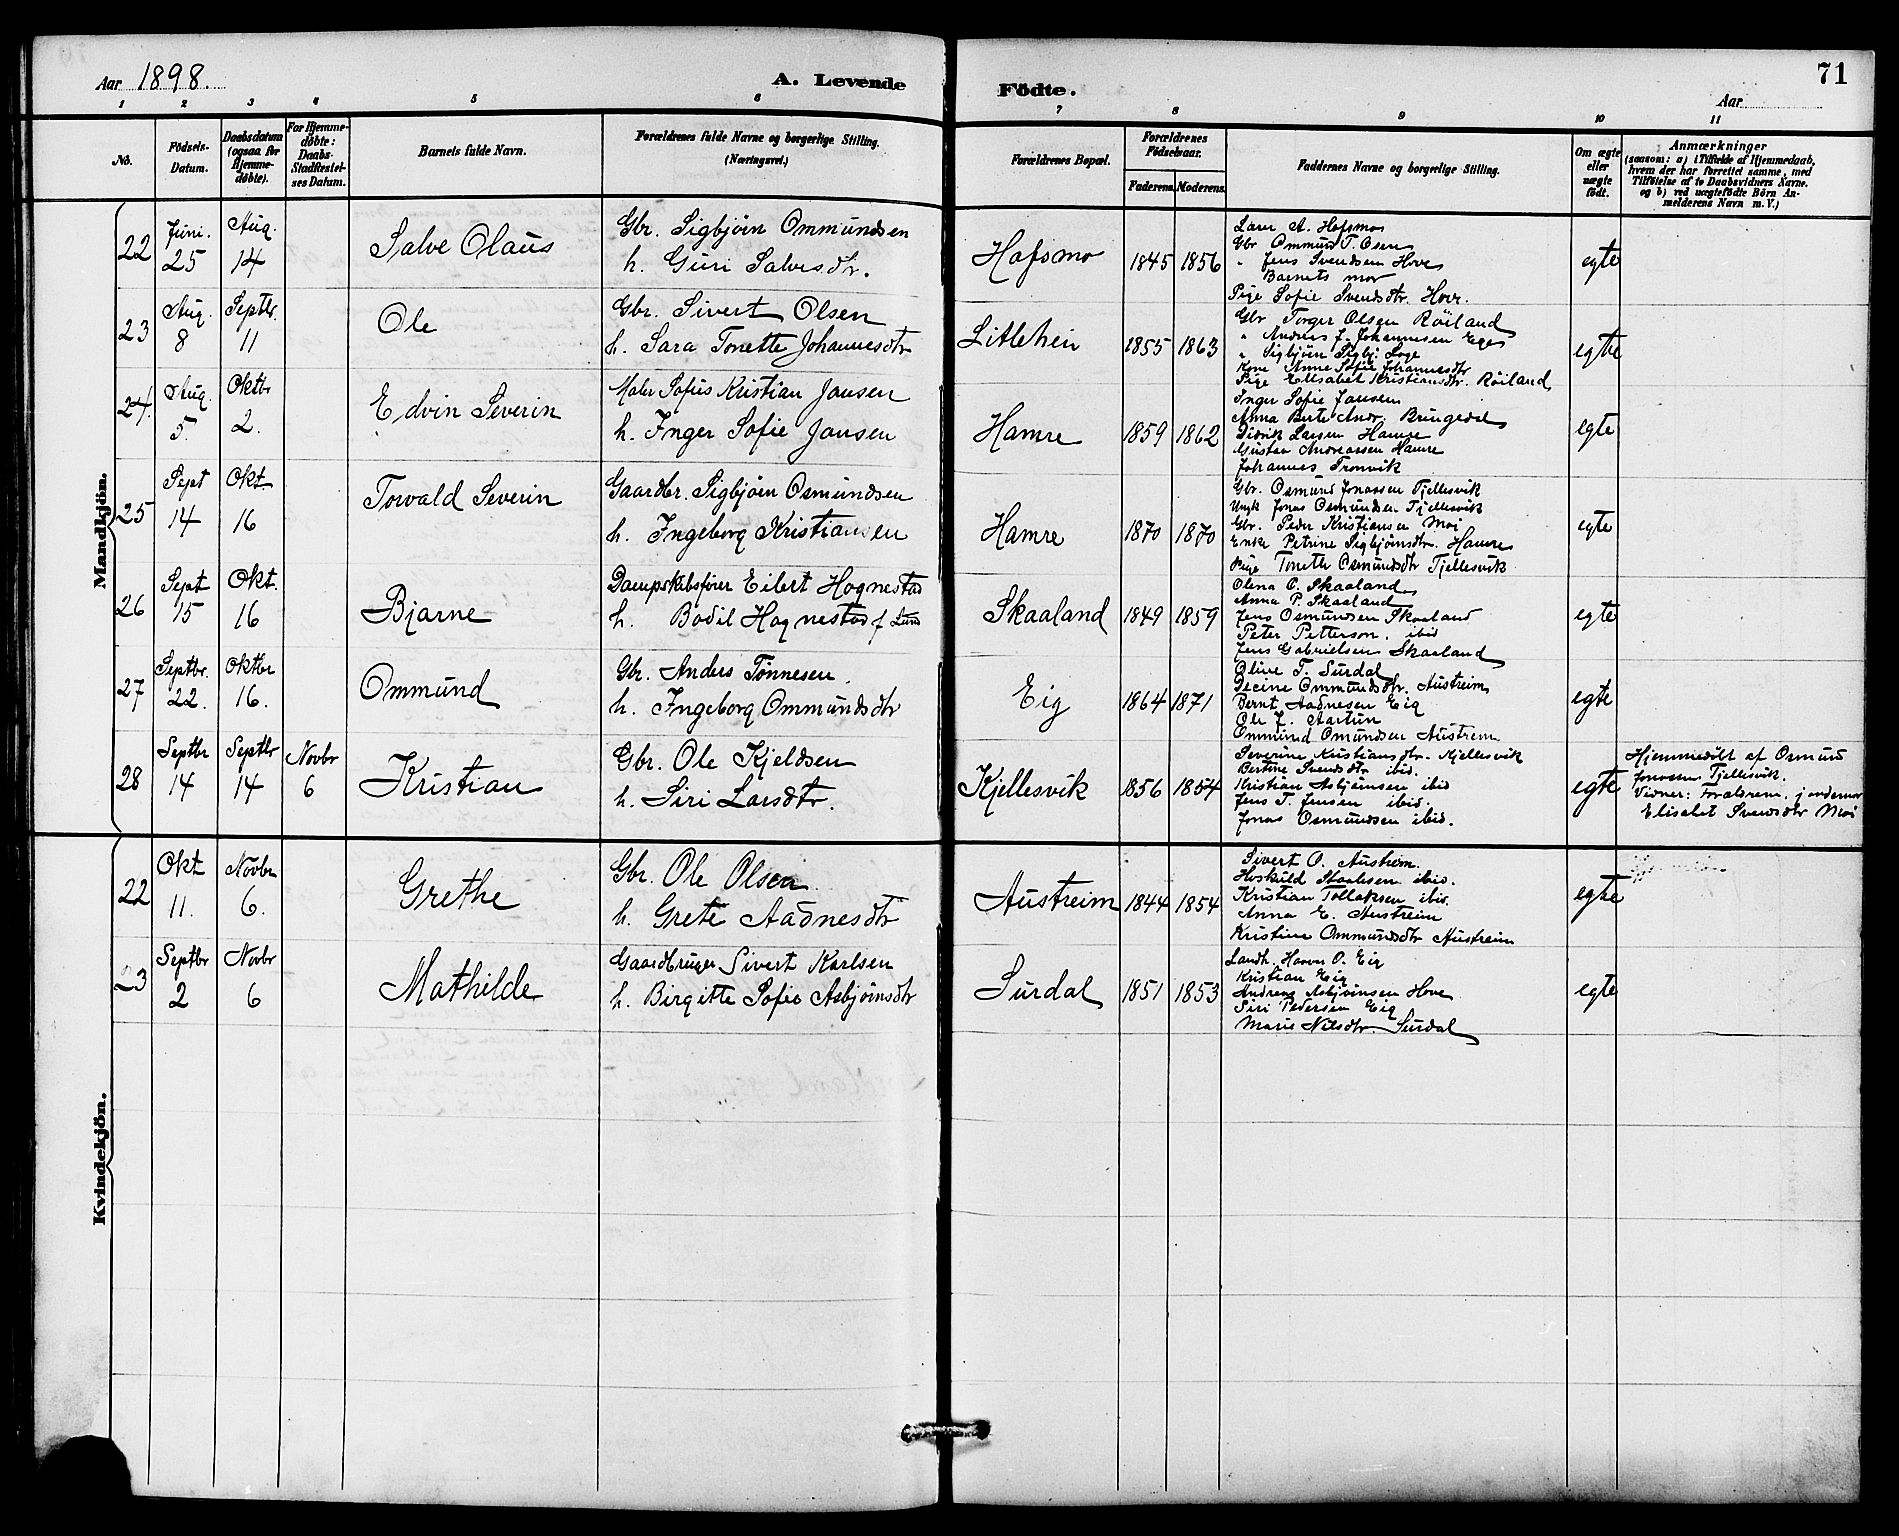 Aar 1898.
A. Levende
Födte.
71
Aar
1 2 3 4 5 6 7 8 9 10 11
No.
Födsels-
Datum.
Daabsdatum
(ogsaa for
Hjemme-
döbte).
For Hjemme-
döbte:
Daabs-
Stadfæstel-
ses Datum.
Barnets fulde Navn.
Forældrenes fulde Navne og borgerlige Stilling.
(Næringsvei.)
Forældrenes Bopæl.
Forældrenes
Födselsaar.
Faderens. Moderens.
Faddernes Navne og borgerlige Stilling.
Om ægte
eller
uægte
födt.
Anmærkninger
(saasom: a) i Tilfælde af Hjemmedaab,
hvem der har forrettet samme, med
Tilföielse af to Daabsvidners Navne.
og b) ved uægtefödte Börn An-
melderens Navn m. V.)
Mandkjön.
22 Juni. 25 Aug. 14
Salve Olaus
Gbr. Sigbjörn Ommundsen
h. Guri Salvesdtr.
Hafsmo 1845 1856
Lars A. Hafsmo
Gbr Ommund T. Osen
" Jens Svendsen Hove
Barnets mor
Pige Sofie Svendsdtr. Hove.
egte
23 Aug. 8 Septbr. 11
Ole
Gbr. Sivert Olsen
h. Sara Tonette Johannesdtr
Litlehei 1855 1863
Gbr Torger Olsen Röiland
" Andreas J. Johannesen Ege
" Sigbjörn Sigbj. Loge
Kone Anne Sofie Johannesdtr
Pige Elisabet Kristiansdtr. Röiland
egte
24. Aug. 5. Oktbr 2.
Edvin Severin
Maler Sofus Kristian Jansen
h. Inger Sofie Jansen
Hamre 1859 1862
Inger Sofie Jansen
Anna Berte Andr. Bringedal
Didrik Larsen Hamre
Gustav Andreassen Hamre
Johannes Tronvik
egte
25 Sept 14 Okt 16
Torvald Severin
Gaardbr. Sigbjörn Osmundsen
h. Ingeborg Kristiansen
Hamre 1870 1870
Gbr. Osmund Jonassen Tjellesvik
Ungk Jonas Osmundsen Tjellesvik
Gbr. Peder Kristiansen Moi
Enke Petrine Sigbjörnsdtr. Hamre
Pige Tonette Osmundsdtr Tjellesvik
egte
26 Sept 15 Okt. 16
Bjarne
Dampskibsförer Eilert Hognestad
h. Bodil Hognestad f Lund
Skaaland 1849 1859
Olena O. Skaaland
Anna P. Skaaland
Jens Osmundsen Skaaland
Peter Petterson. ibid
Jens Gabrielsen Skaaland
egte
27 Septbr. 22. Oktbr 16.
Ommund
Gbr. Anders Tönnesen.
h. Ingeborg Ommundsdtr
Eig 1864 1871
Oline T. Surdal
Decine Ommundsdtr. Austreim
Bernt Aadnesen Eig
Ole J. Aartun
Ommund Omundsen Austreim
egte
28 Septbr 14 Septbr 14 Novbr 6
Kristian
Gbr. Ole Kjeldsen
h. Siri Larsdtr.
Kjellesvik 1856 1854
Severine Kristiansdtr. Kjellesvik
Bertine Svendsdtr ibid.
Kristian Asbjörnsen ibid
Jens T. Jensen ibid.
Jonas Osmundsen ibid.
egte
Hjemmedöbt af Osmund
Jonassen Tjellesvik.
Vidner: Forældrene, jordemor
Elisabet Svendsdtr Moi
Kvindekjön.
22 Okt 11. Novbr 6.
Grethe
Gbr. Ole Olsen
h. Grete Aadnesdtr
Austreim 1844 1854
Sivert O. Austreim.
Höskuld Staalesen ibid.
Kristian Tollaksen ibid.
Anna E. Austreim
Kristine Ommundsdtr Austreim
egte
23 Septbr 2 Novbr 6
Mathilde
Gaardbruger Sivert Karlsen
h. Birgitte Sofie Asbjörnsdtr
Surdal 1851 1853
Landh. Haavar O. Eig
Kristian Eig
Andreas Asbjörnsen Hove
Siri Pedersen Eig
Marie Nilsdtr. Surdal
egte